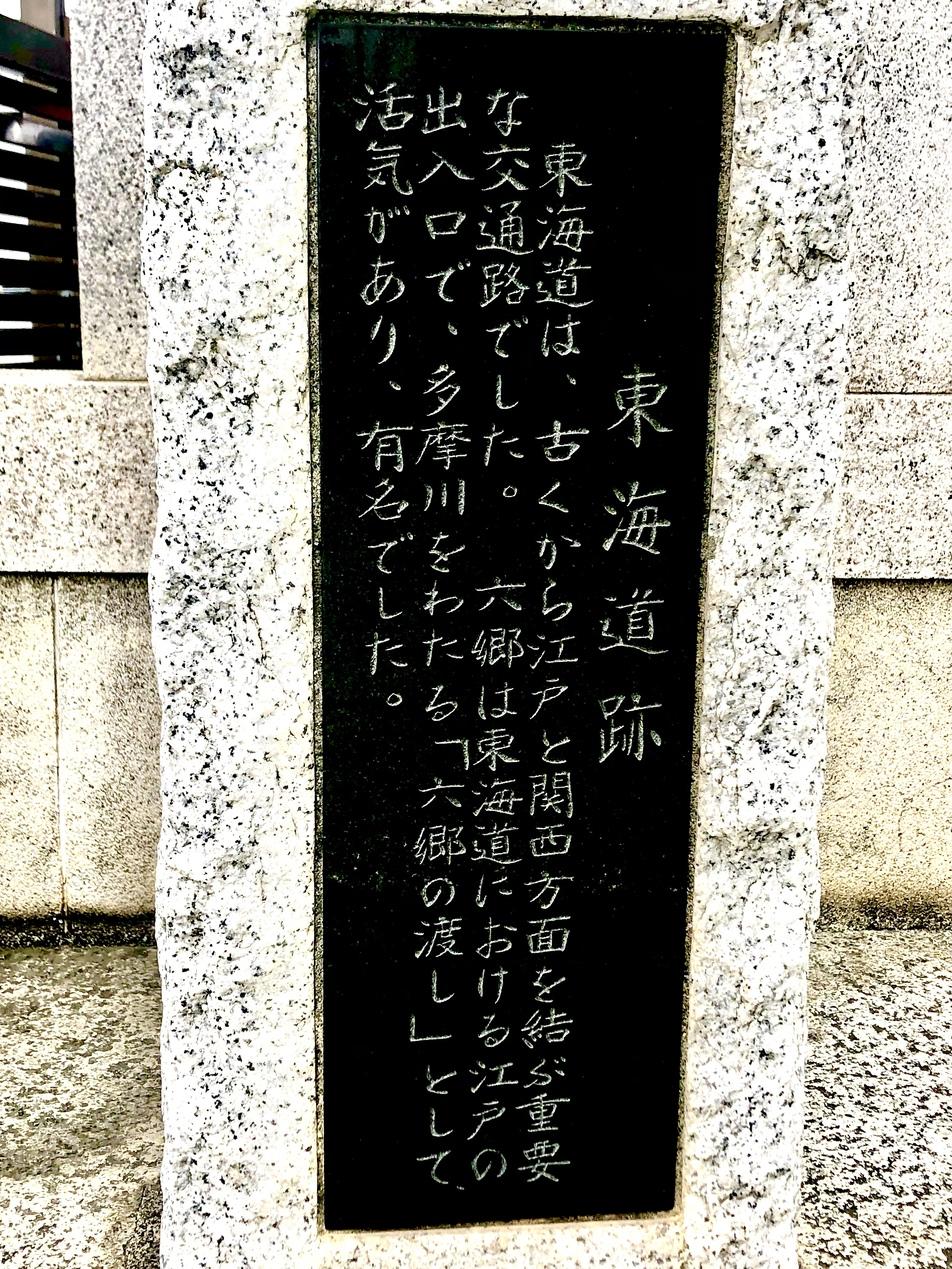 東海道跡
東海道は、古くから江戸と関西方面を結ぶ重要
な交通路でした。六郷は東海道における江戸の
出入口で、多摩川をわたる「六郷の渡し」として、
活気があり、有名でした。